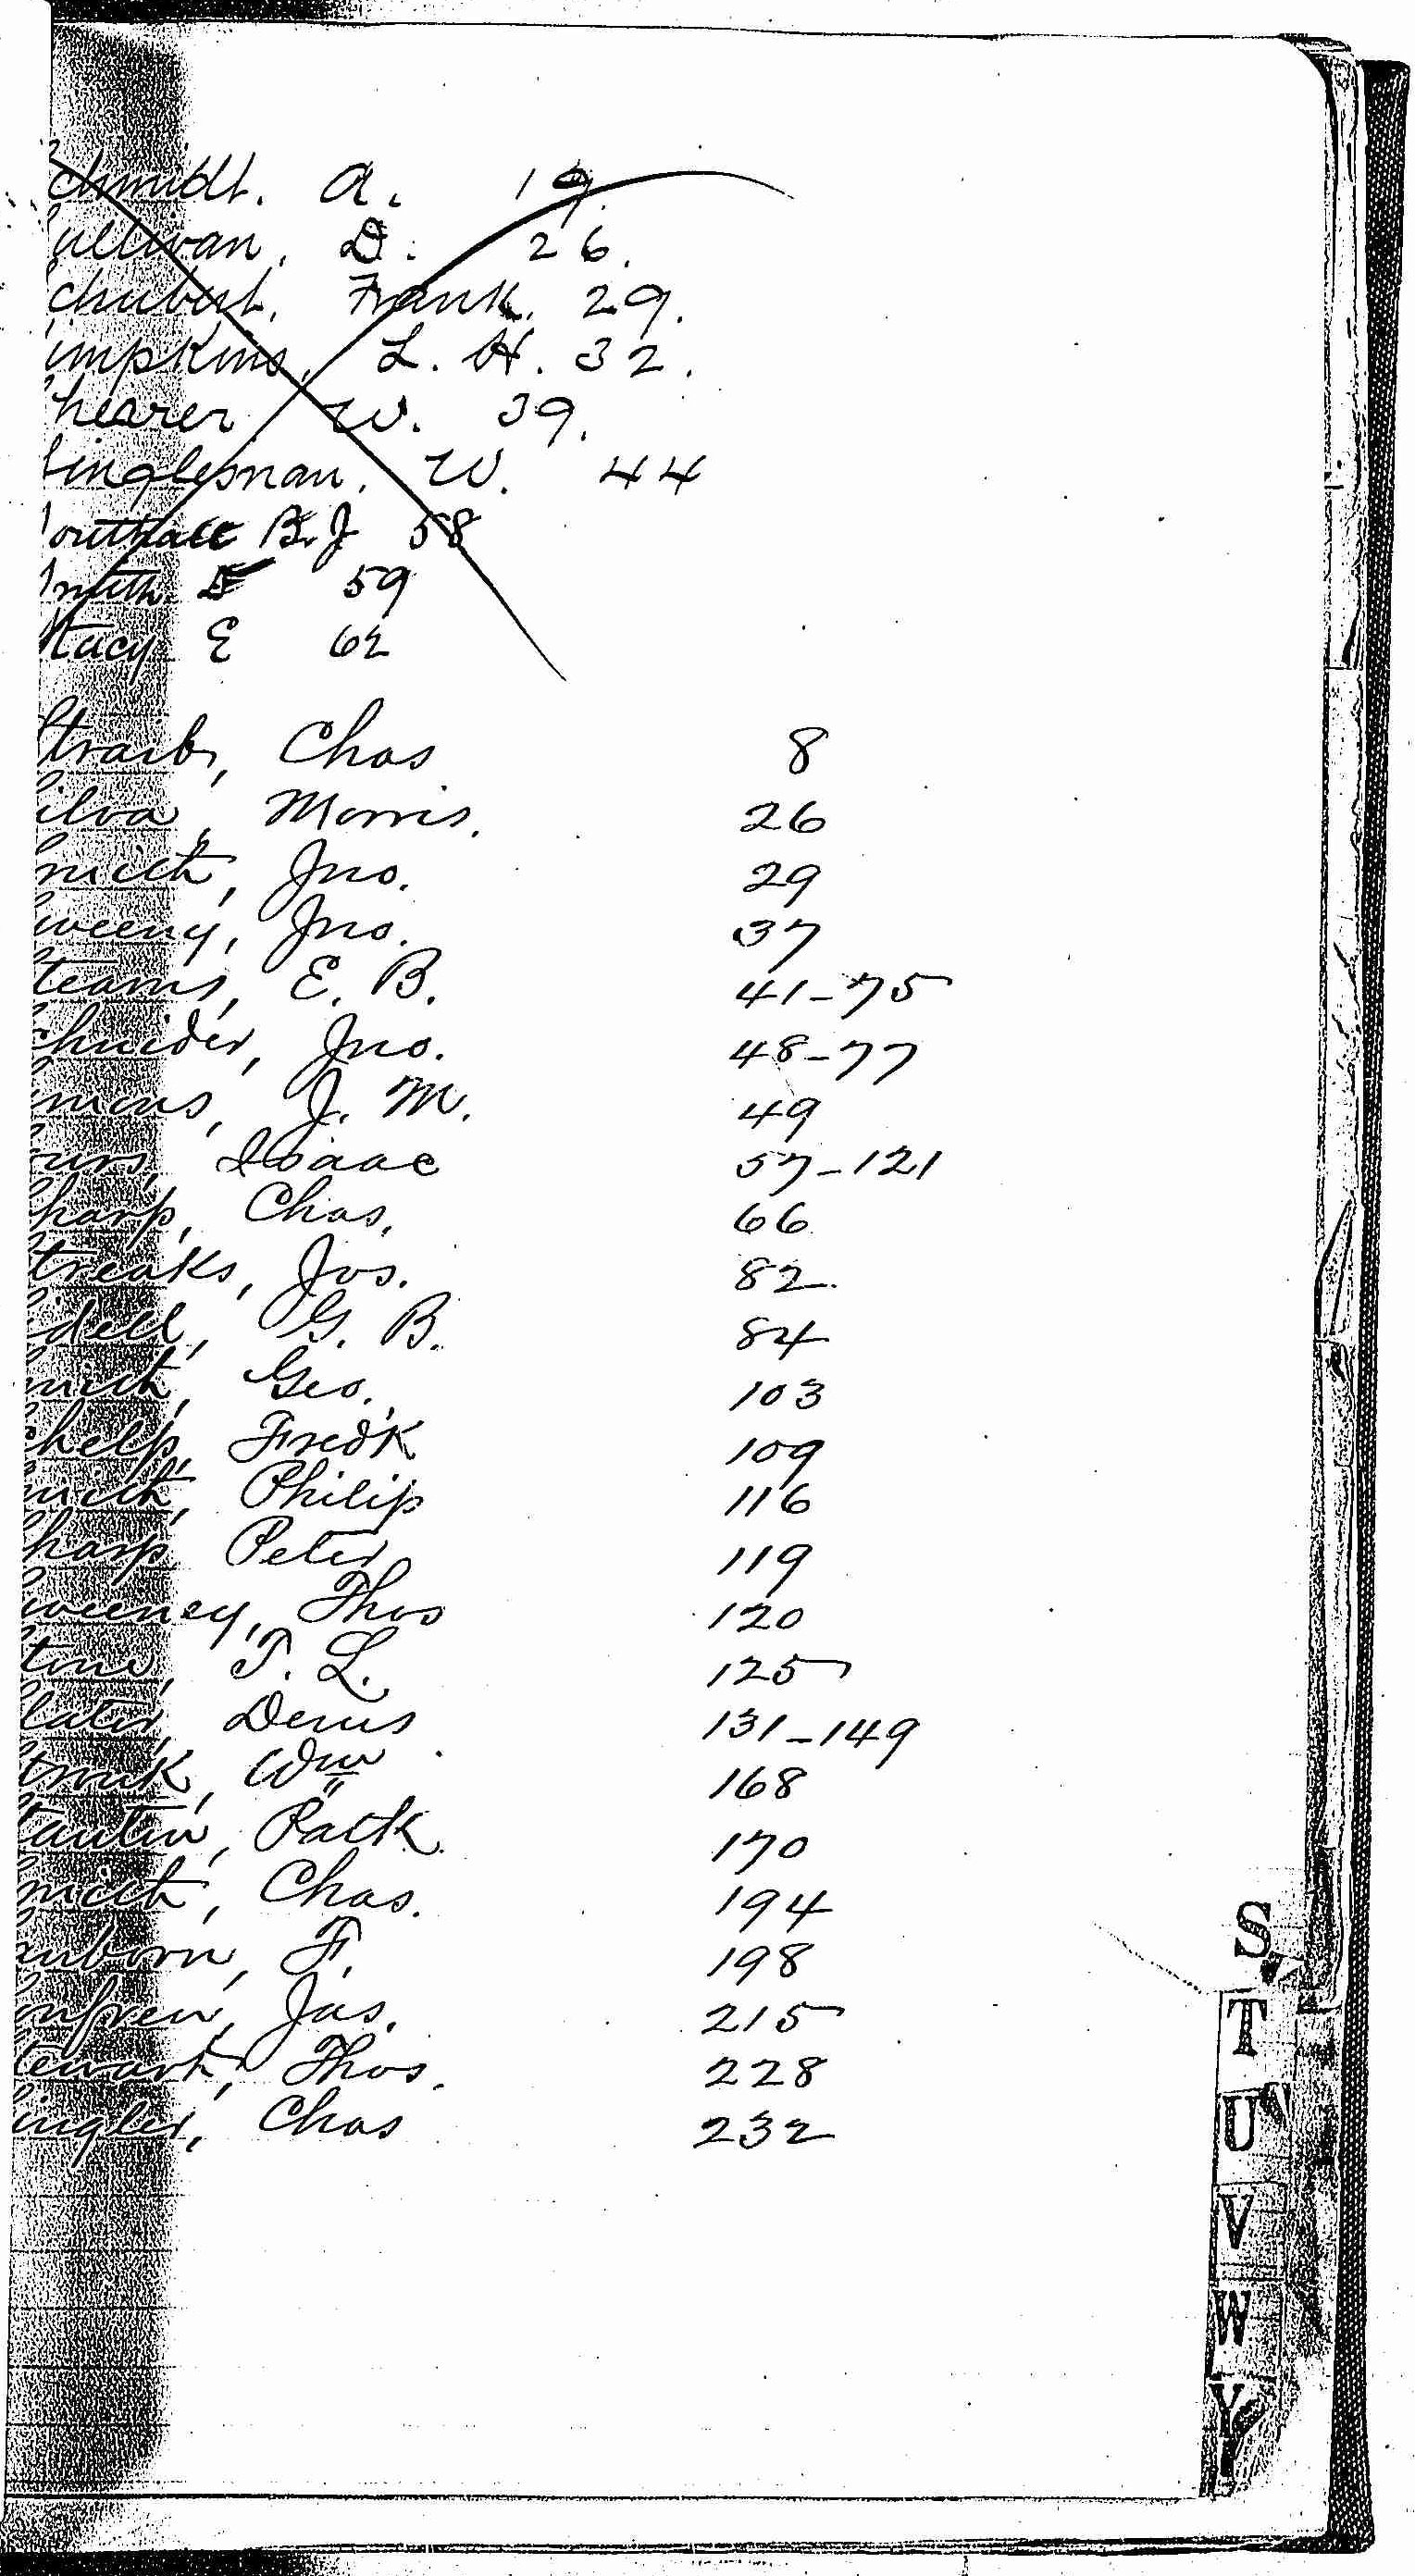 chmidt. A. 19.
Sullivan, D. 26.
chubert, Frank. 29.
impkins, L. H. 32.
Shearer W. 39.
Singlesman, W. 44
Southall B. J 58
Smith 59
Stacy E 62
Straib, Chas 8
Silva, Morris. 26
Smith, Jno. 29
Sweeny, Jno. 37
Stearns, E. B. 41-75
chnider, Jno. 48-77
imons, J. M. 49
Isaac 57-121
Sharp, Chas. 66
Streaks, Jos. 82
idell, G. B. 84
mith, Geo. 103
chelp, Fredk 109
mith, Philip 116
Sharp Peter 119
Sweeney, Thos 120
Stone, T. L. 125
Slater, Denis 131-149
Strunk, Wm 168
Stanton, Patk. 170
Smith, Chas. 194
anborn, F. 198
Jas. 215
Stewart, Thos. 228
Singler, Chas 232
S
T
U
V
W
Y